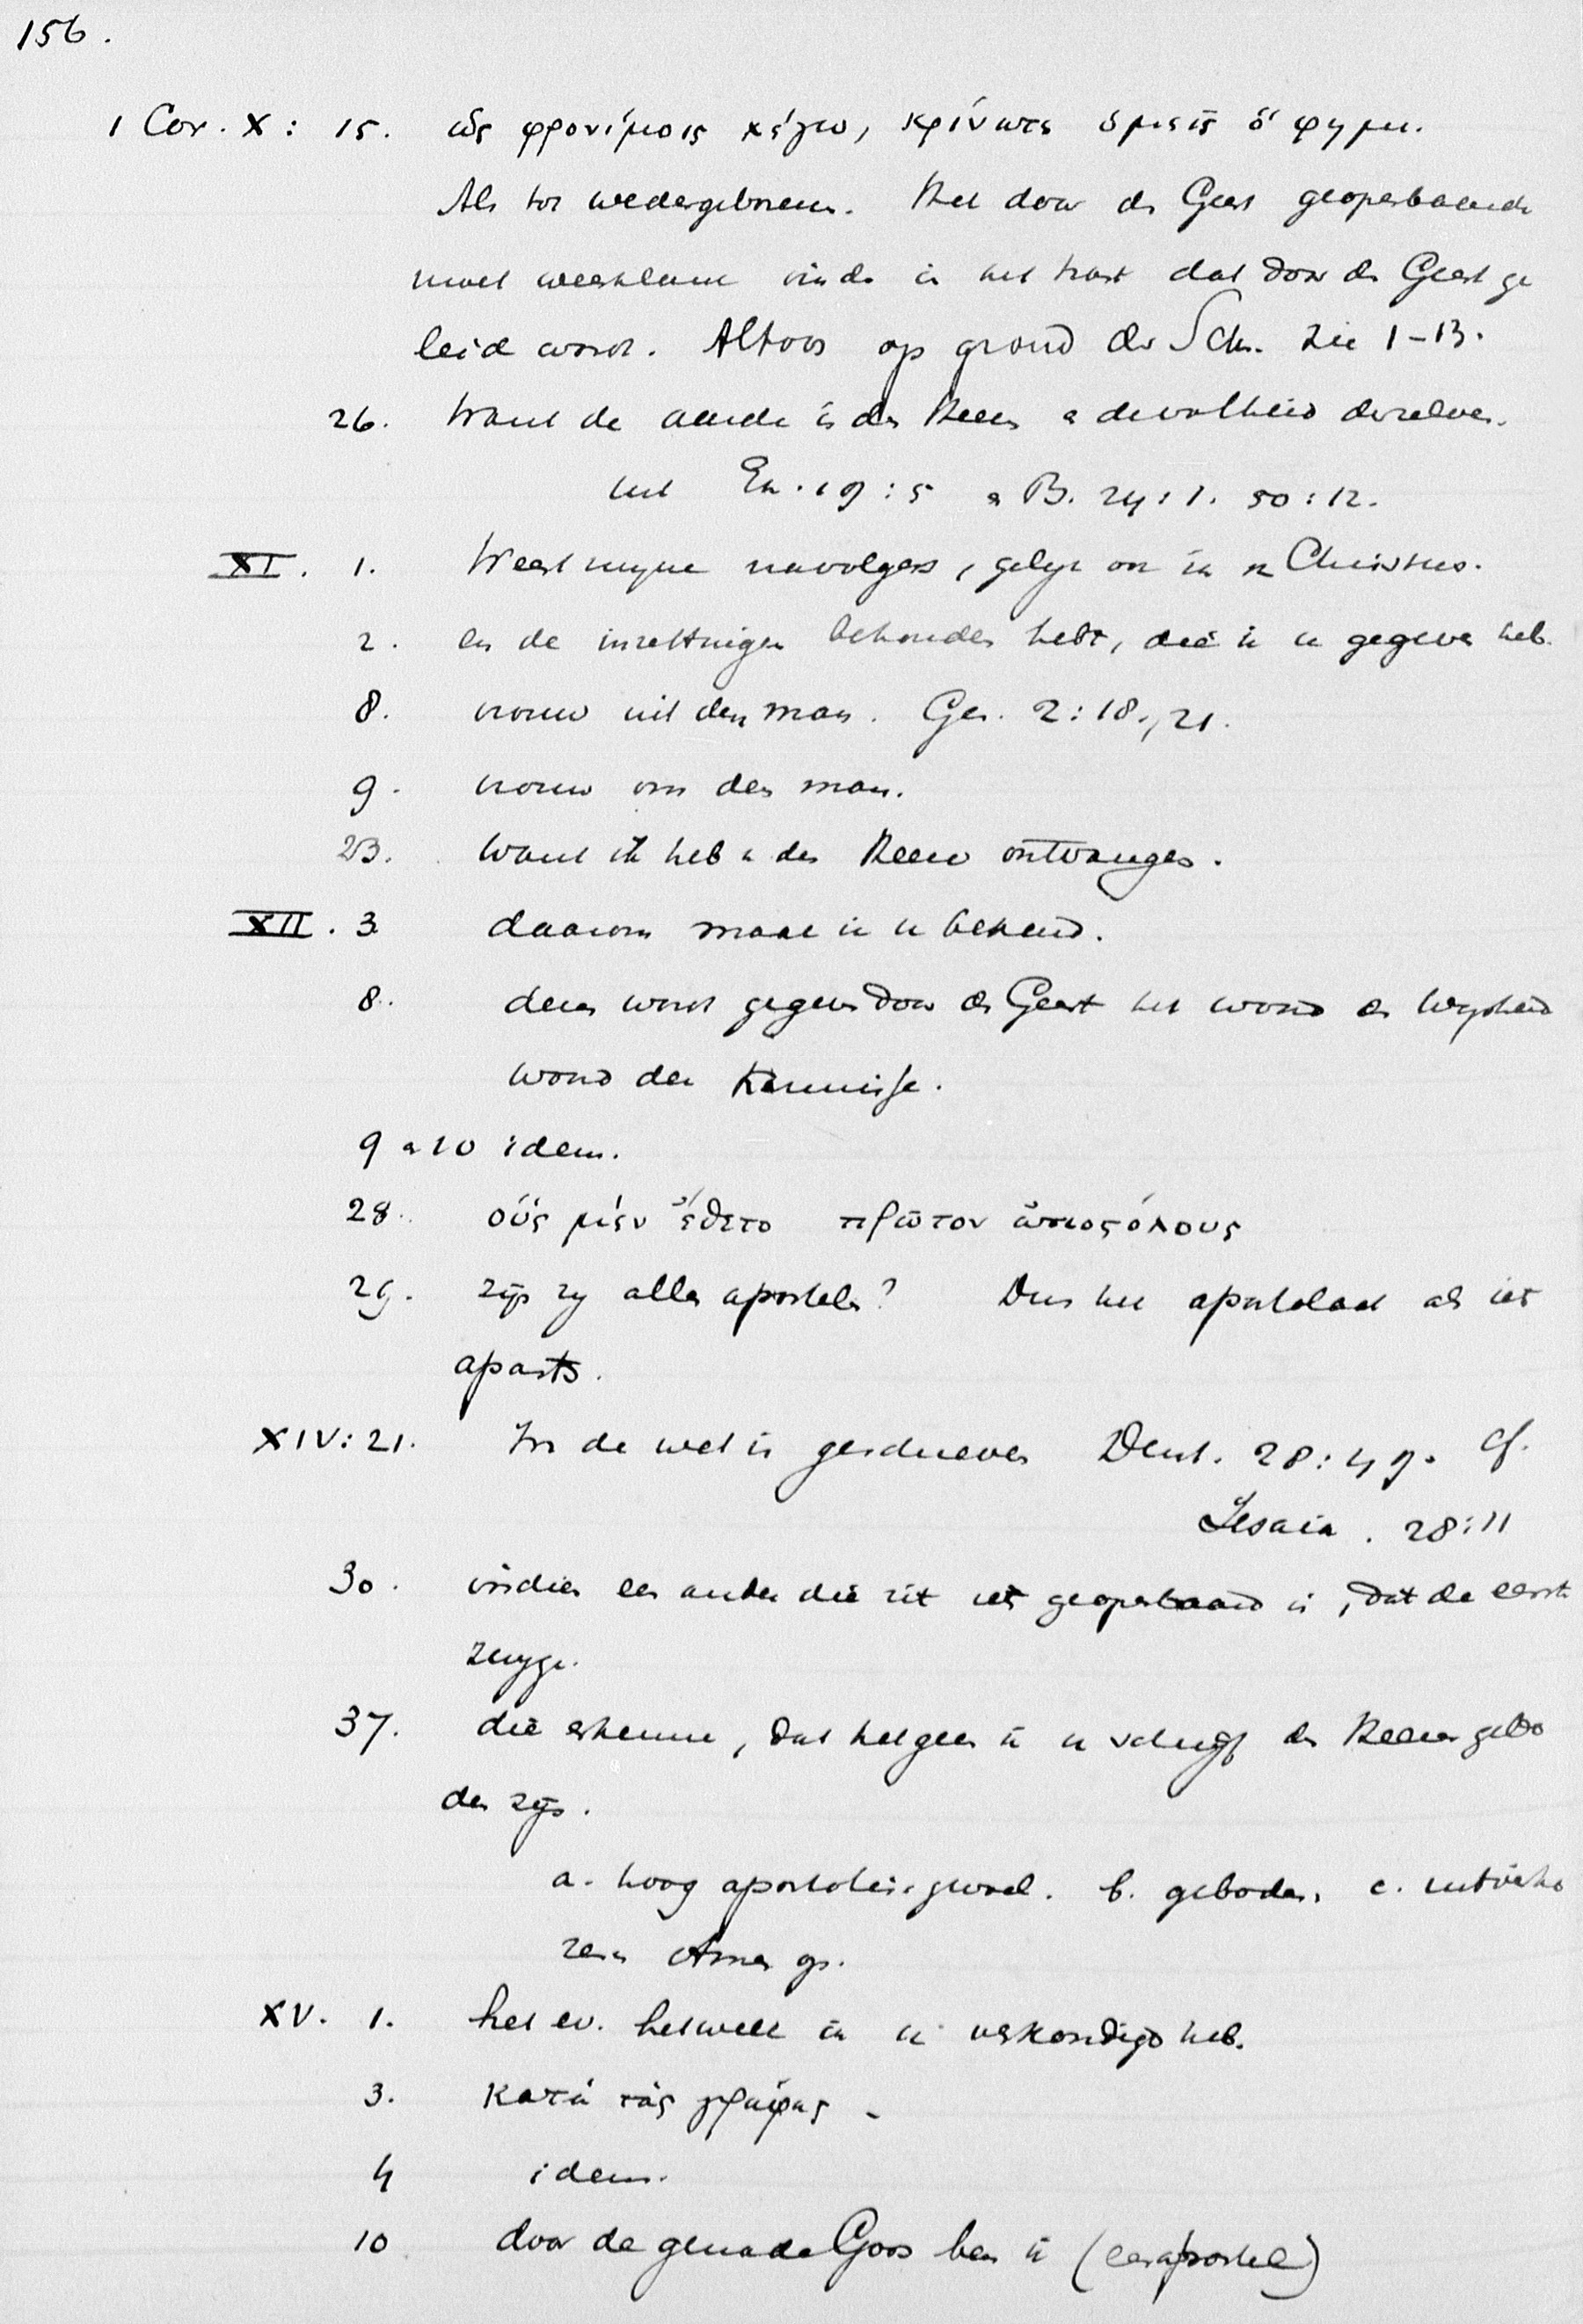 156.
1 Cor. X: 15. ὡς φρονίμοις λέγω, κρίνατε ὑμεῖς ὅ φημι.
Als tot wedergeboren. Het door de Geest geopenbaarde
moet weerklank vinden in het hart dat door de Geest ge
leid wordt. Altoos op grond der Sch. Zie 1-13.
26. Want de aarde is des Heeren en de volheid derzelver.
uit Ex. 19:5 en Ps. 24:1. 50:12.
XI. 1. Weest mijne navolgers, gelijk ook ik van Christus.
2. en de inzettingen behouden hebt, die ik u gegeven heb.
8. vrouw uit den man. Gen. 2:18, 21.
9. vrouw om den man.
23. Want ik heb van den Heere ontvangen.
XII. 3 daarom maak ik u bekend.
8. dezen wordt gegeven door de Geest het woord der wijsheid
woord der kennisse.
9 en 10 idem.
28. οὓς μὲν ἔθετο πρῶτον ἀποστόλους
29. zijn zij allen apostelen? Dus het apostolaat als iets
aparts.
XIV: 21. In de wet is geschreven Deut. 28:49. cf.
Jesaia. 28:11
30. indien een ander die zit iets geopenbaard is, dat de eerste
zwijge.
37. die erkenne, dat hetgeen ik u schrijf des Heeren gebo
den zijn.
a. hoog apostolisch gevoel. b. geboden. c.
XV. 1. het ev. hetwelk ik u verkondigd heb.
3. κατὰ τὰς γραφὰς -
4 idem.
10 door de genade Gods ben ik (een apostel)